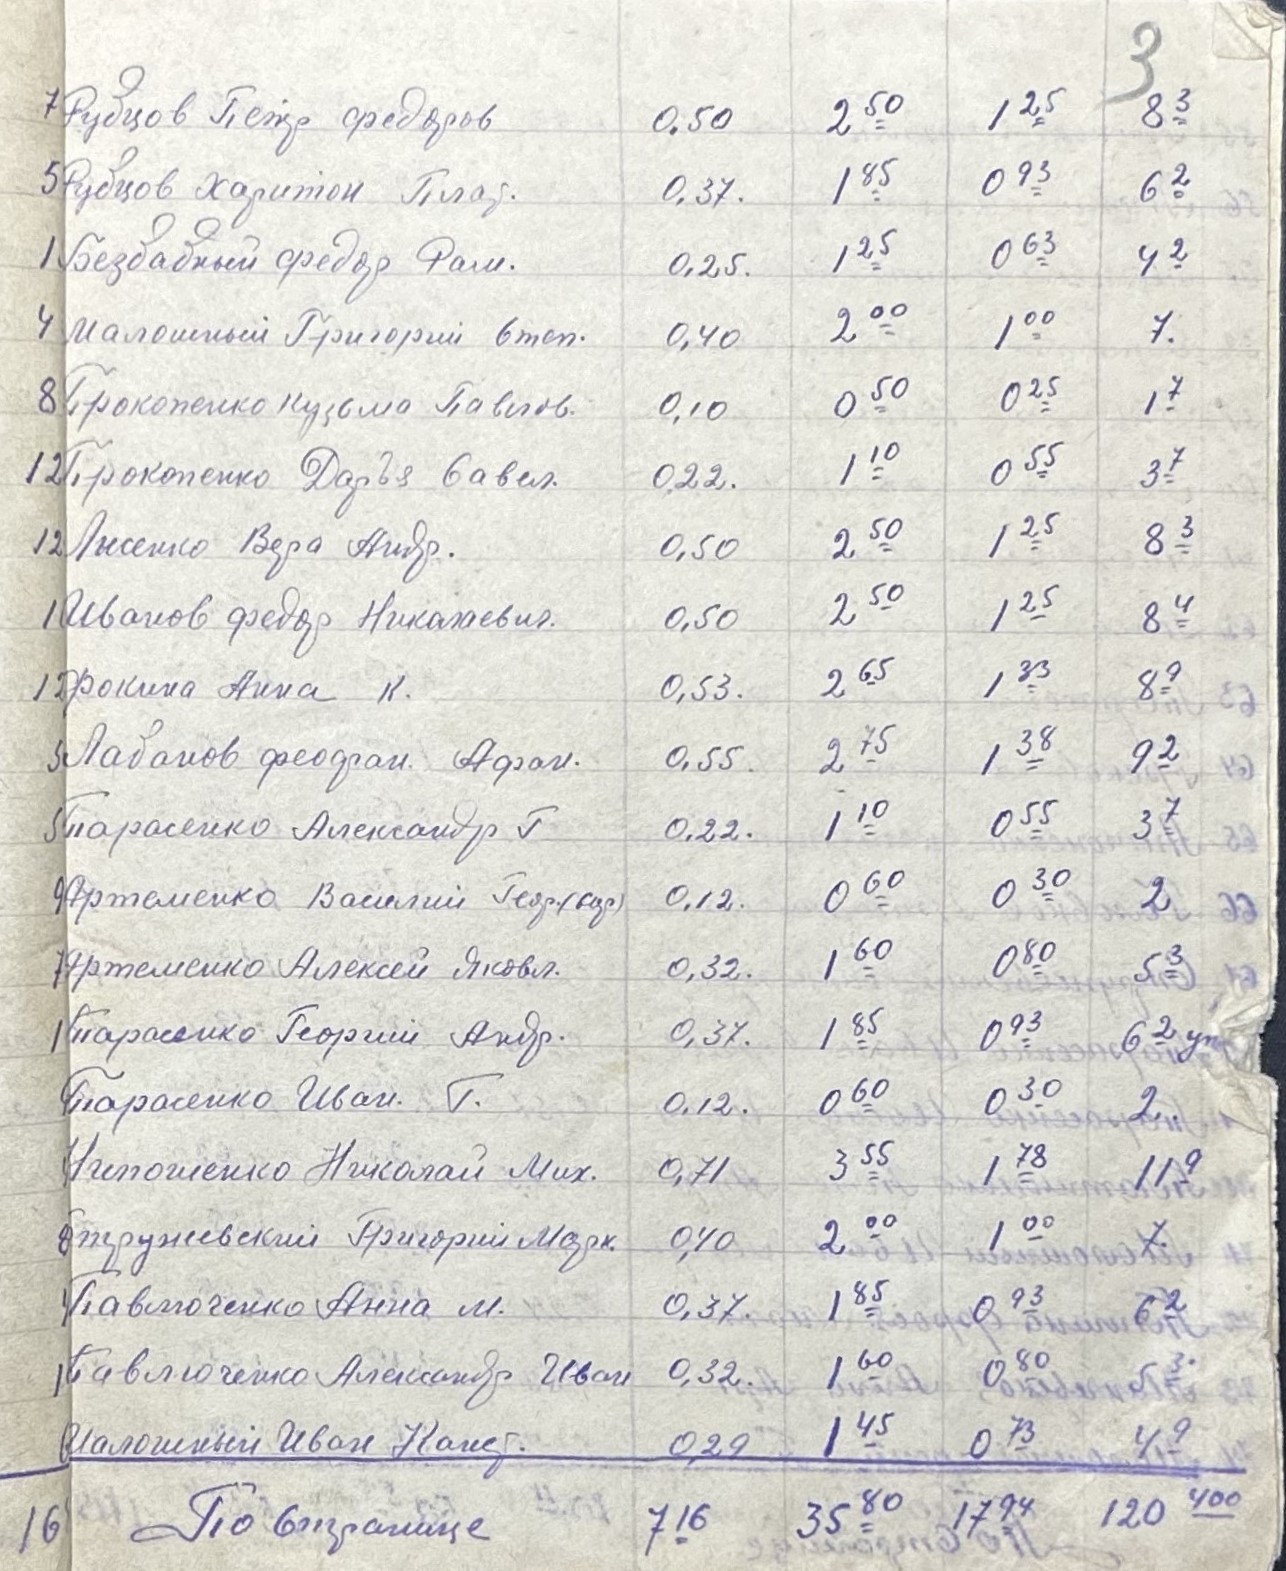 3
7 Рубцов Петр Федоров 0,50 2 50 1 25 8 3
5 Рубцов Харитон Плат. 0,37. 1 85 0 93 6 2
1 Безбабный Федор Рам. 0,25. 1 25 0 63 4 2
4 Малошный Григорий Степ. 0,40 2 00 1 00 7.
8 Прокопенко Кузьма Павлов. 0,10 0 50 0 25 1 7
12 Прокопенко Дарья Савел. 0,22. 1 10 0 55 3 7
12 Лысенко Вера Андр. 0,50 2 50 1 25 8 3
1 Иванов Федор Николаевич. 0,50 2 50 1 25 8 4
12 Фокина Анна К. 0,53. 2 65 1 33 8 9
3 Лабанов Феофан. Афан. 0,55. 2 75 1 38 9 2
5 Тарасенко Александр Г 0,22. 1 10 0 55 3 7
9 Артеменко Василий Геор. 0,12. 0 60 0 30 2
7 Артеменко Алексей Яковл. 0,32. 1 60 0 80 5 3
1 Тарасенко Георгий Андр. 0,37. 1 85 0 93 6 2
Тарасенко Иван. Г. 0,12. 0 60 0 30 2..
Николай Мих. 0,71 3 55 1 78 11 9
8 Стружевский Григорий Марк. 0,40 2 00 1 00 7.
Павлюченко Анна М. 0,37. 1 85 0 93 6 2
1 Павлюченко Александр Иван 0,32. 1 60 0 80 5 3.
Малошный Иван Конст. 0,29 1 45 0 73 4 9
16 По странице 7 16 35 80 17 94 120 400